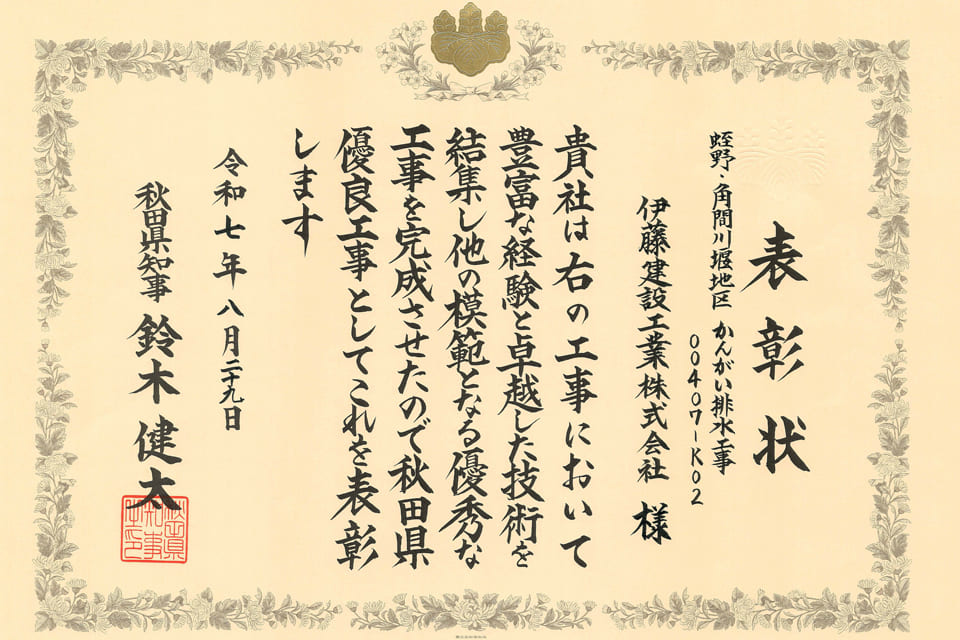 表彰状
蛭野・角間川堰地区 かんがい排水工事
00407-K02
伊藤建設工業株式会社 様
貴社は右の工事において
豊富な経験と卓越した技術を
結集し他の模範となる優秀な
工事を完成させたので秋田県
優良工事としてこれを表彰
します
令和七年八月二十九日
秋田県知事 鈴木健太